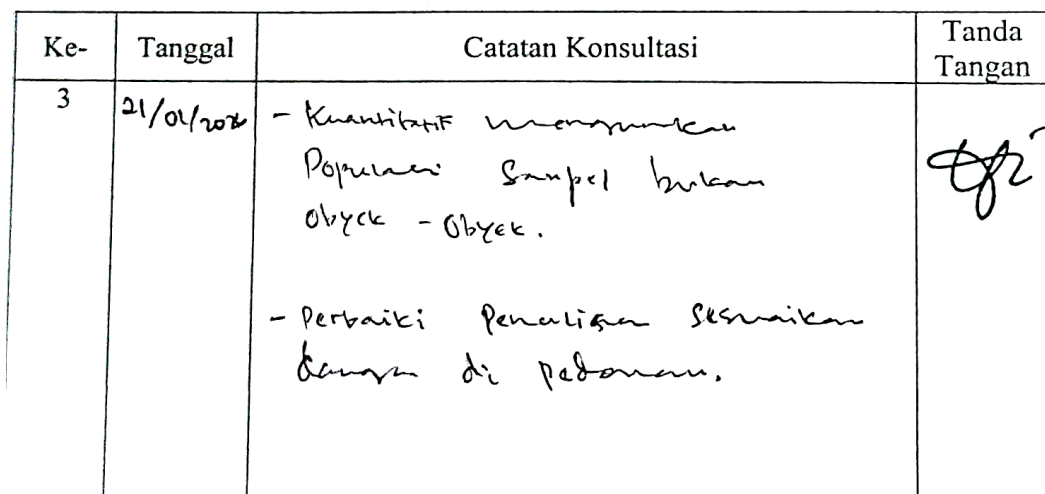 Ke- Tanggal Catatan Konsultasi Tanda Tangan
3 - Kuantitatif menggunakan
Populasi Sampel bukan
obyek - Obyek.
- Perbaiki Penulisan sesuaikan
dengan di pedoman.